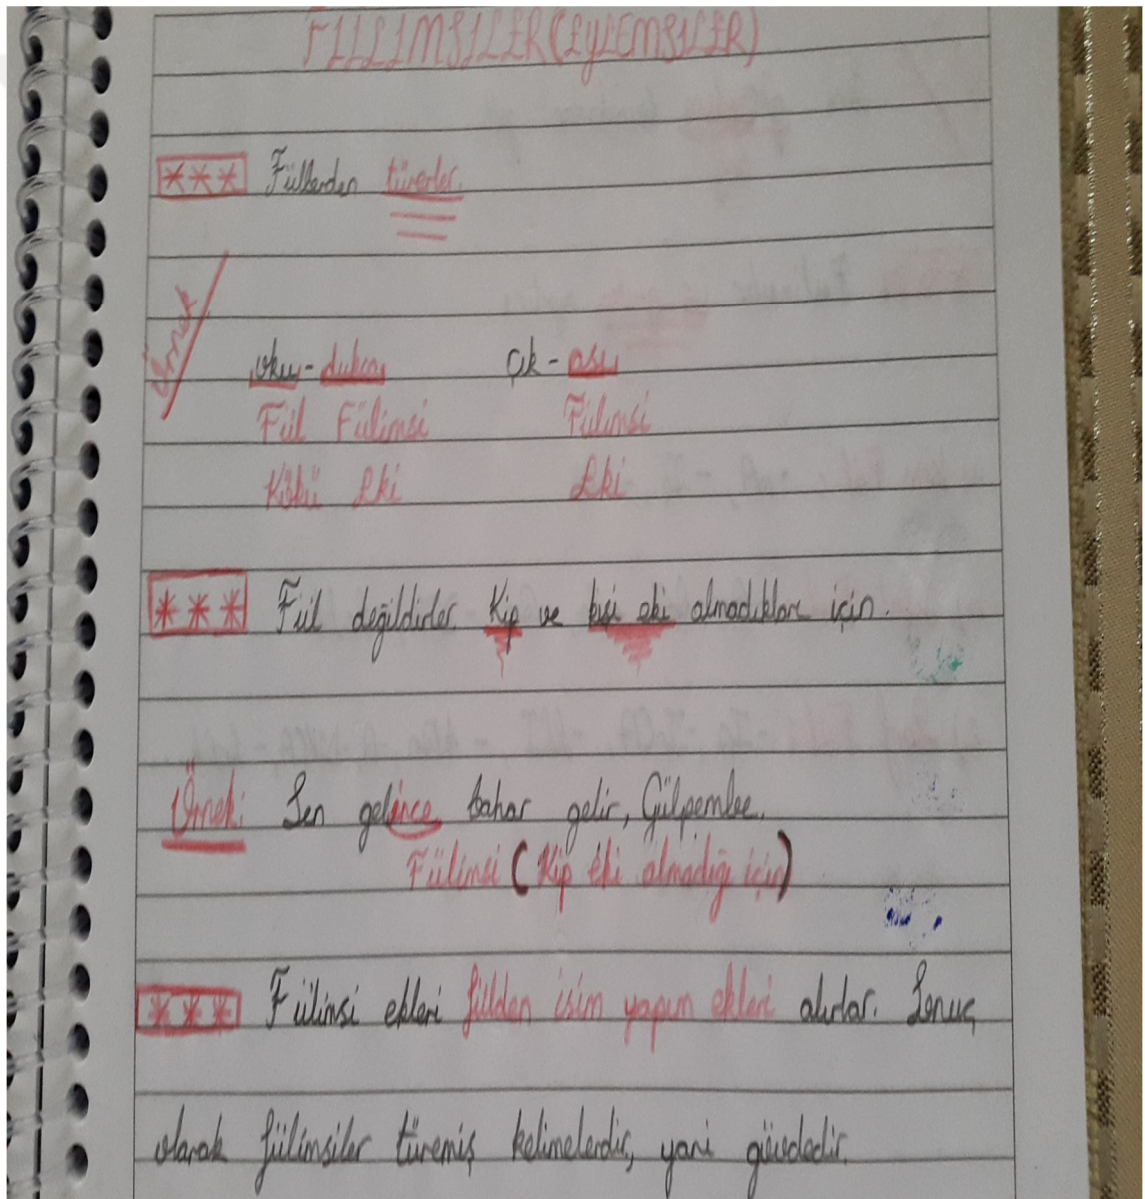 FİİLİMSİLER (EYLEMSİLER)
*** Fiillerden türerler.
Örnek
oku-dukça çık-ası
Fiil Fiilimsi Fiilimsi
Kökü Eki Eki
*** Fiil değildirler. Kip ve kişi eki almadıkları için.
Örnek: Sen gelince bahar gelir, Gülpembe.
Fiilimsi (Kip eki almadığı için)
*** Fiilimsi ekleri fiilden isim yapım ekleri alırlar. Sonuç
olarak fiilimsiler türemiş kelimelerdir, yani gövdedir.